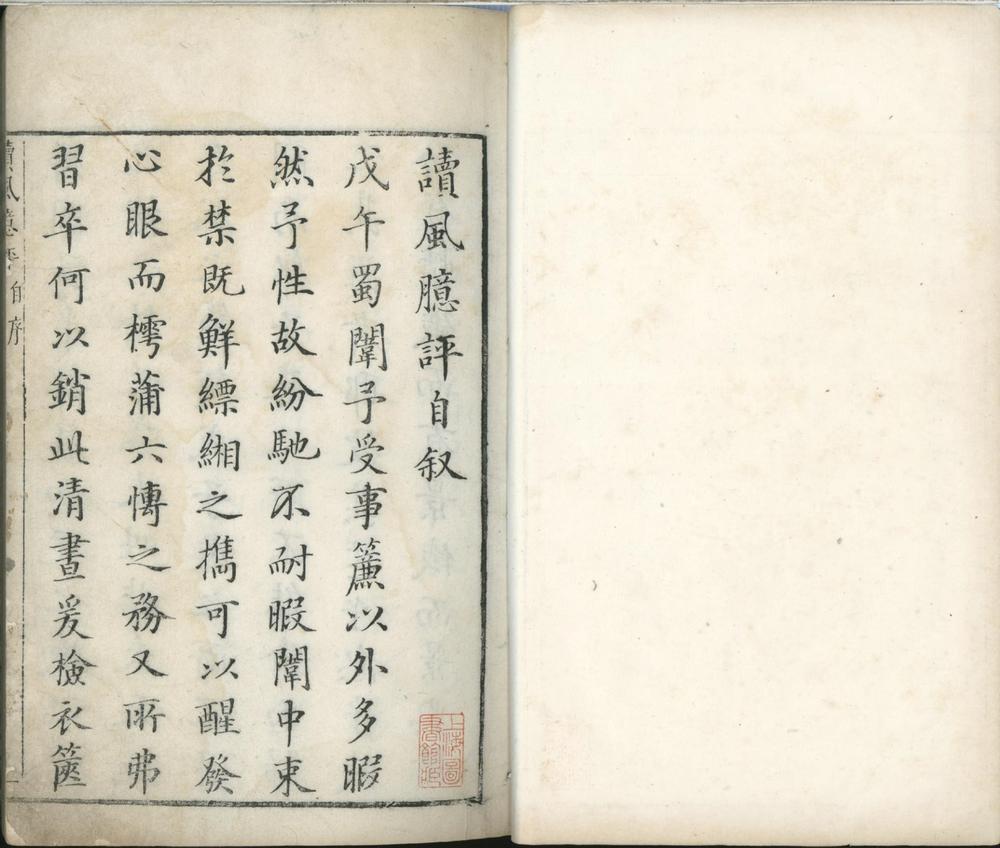 讀風臆評自叙
戊午蜀闈予受事簾以外多暇
然予性故紛馳不耐暇闈中束
扵禁既鮮縹緗之擕可以醒發
心眼而樗蒲六愽之務又所弗
習卒何以銷此清晝爰檢衣篋
讀風臆評自序
上海圖書館藏